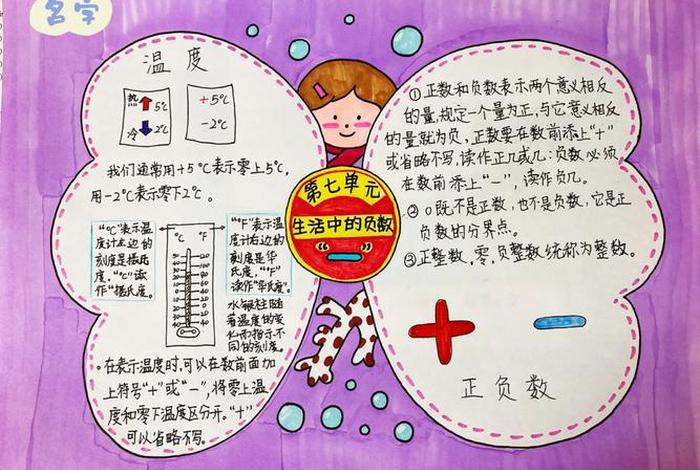 名字
温度
热 5℃
冷 2℃
+5℃
-2℃
我们通常用+5℃表示零上5℃,
用-2℃表示零下2℃。
"℃"表示温
度计左边的
刻度是摄氏
度,"℃"读
作"摄氏度。
℃ ℉
"℉"表示温
度计右边的
刻度是华
氏度,"℉"
读作"华氏度。
水银柱随
着温度的变
化而指示不
同的刻度。
在表示温度时,可以在数前面加
上符号"+"或"-",将零上温
度和零下温度区分开。"+"
可以省略不写。
第七单元
生活中的负数
"-"
①正数和负数表示两个意义相反
的量,规定一个量为正,与它意义相反
的量就为负,正数要在数前添上"+"
或省略不写,读作正几或几;负数必须
在数前添上"-",读作负几。
②0既不是正数,也不是负数,它是正
负数的分界点。
③正整数,零,负整数统称为整数。
+ -
正负数